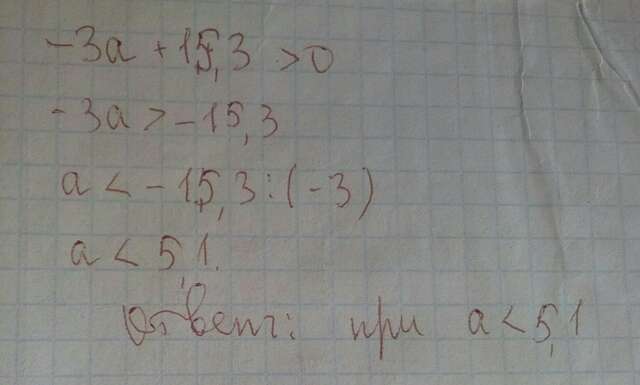 -3a + 15,3 > 0
-3a > -15,3
a < -15,3 : (-3)
a < 5,1.
Ответ: при a < 5,1